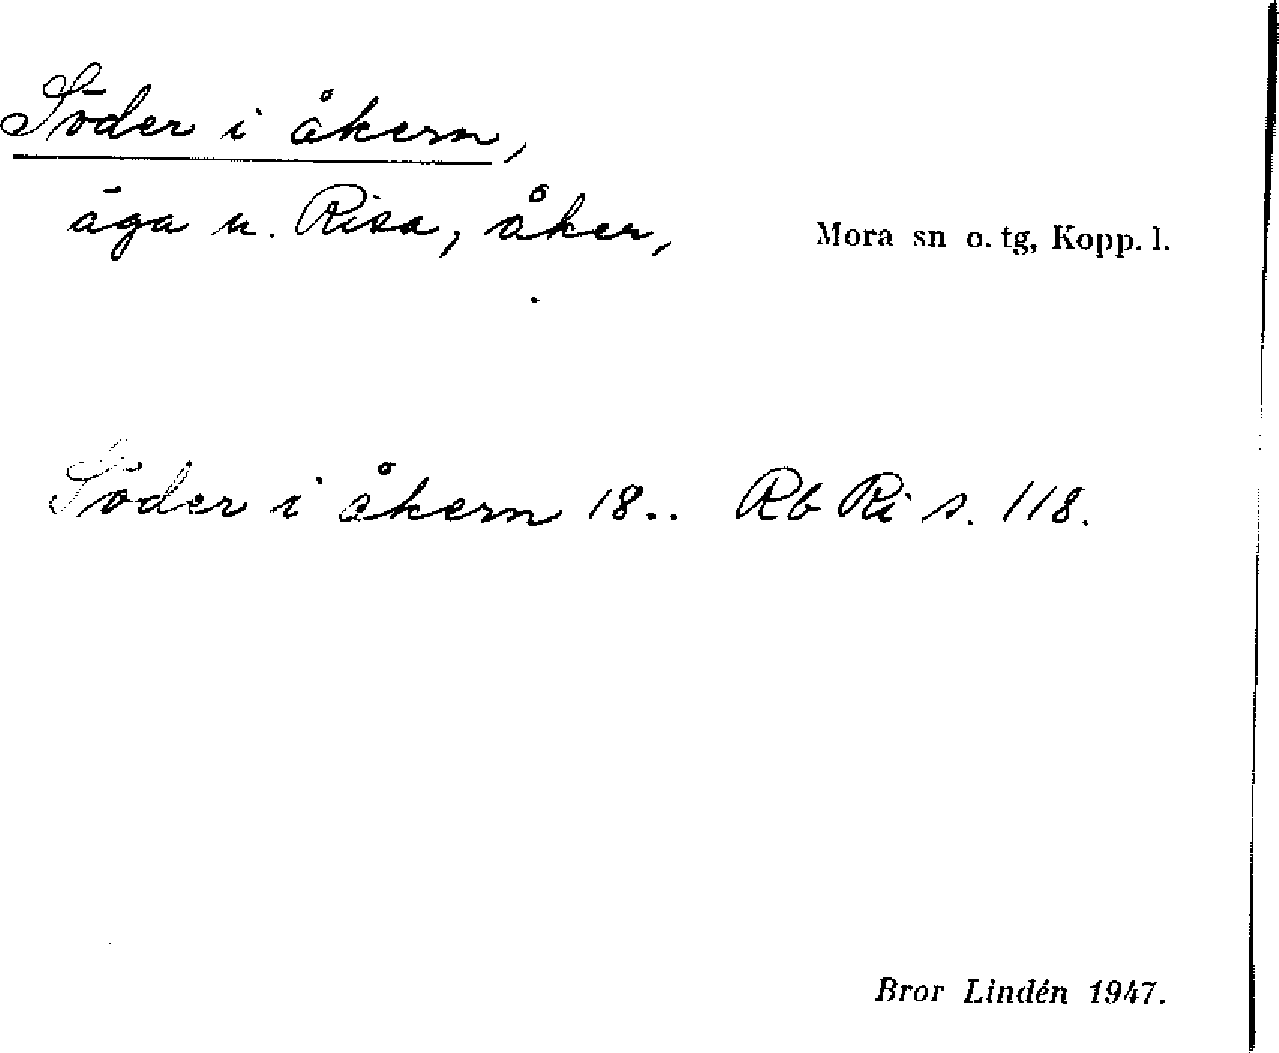 Söder i åkern,
äga u. Risa, åker,
Mora sn o. tg, Kopp. l.
Söder i åkern 18.. Rb Ri s. 118.
Bror Lindén 1947.